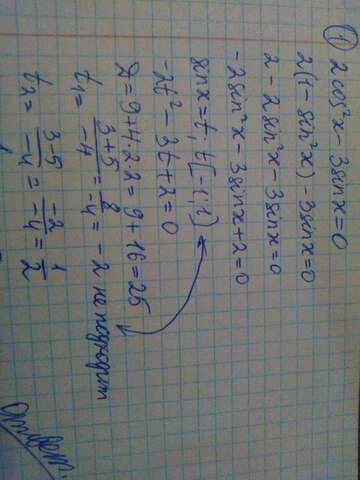 ① 2cos²x - 3sinx = 0
2(1 - sin²x) - 3sinx = 0
2 - 2sin²x - 3sinx = 0
-2sin²x - 3sinx + 2 = 0
sinx = t, t[-1;1]
-2t² - 3t + 2 = 0
D = 9 + 4·2·2 = 9 + 16 = 25
t₁ = (3+5)/-4 = 8/-4 = -2 не подходит
t₂ = (3-5)/-4 = -2/-4 = 1/2
Ответ: